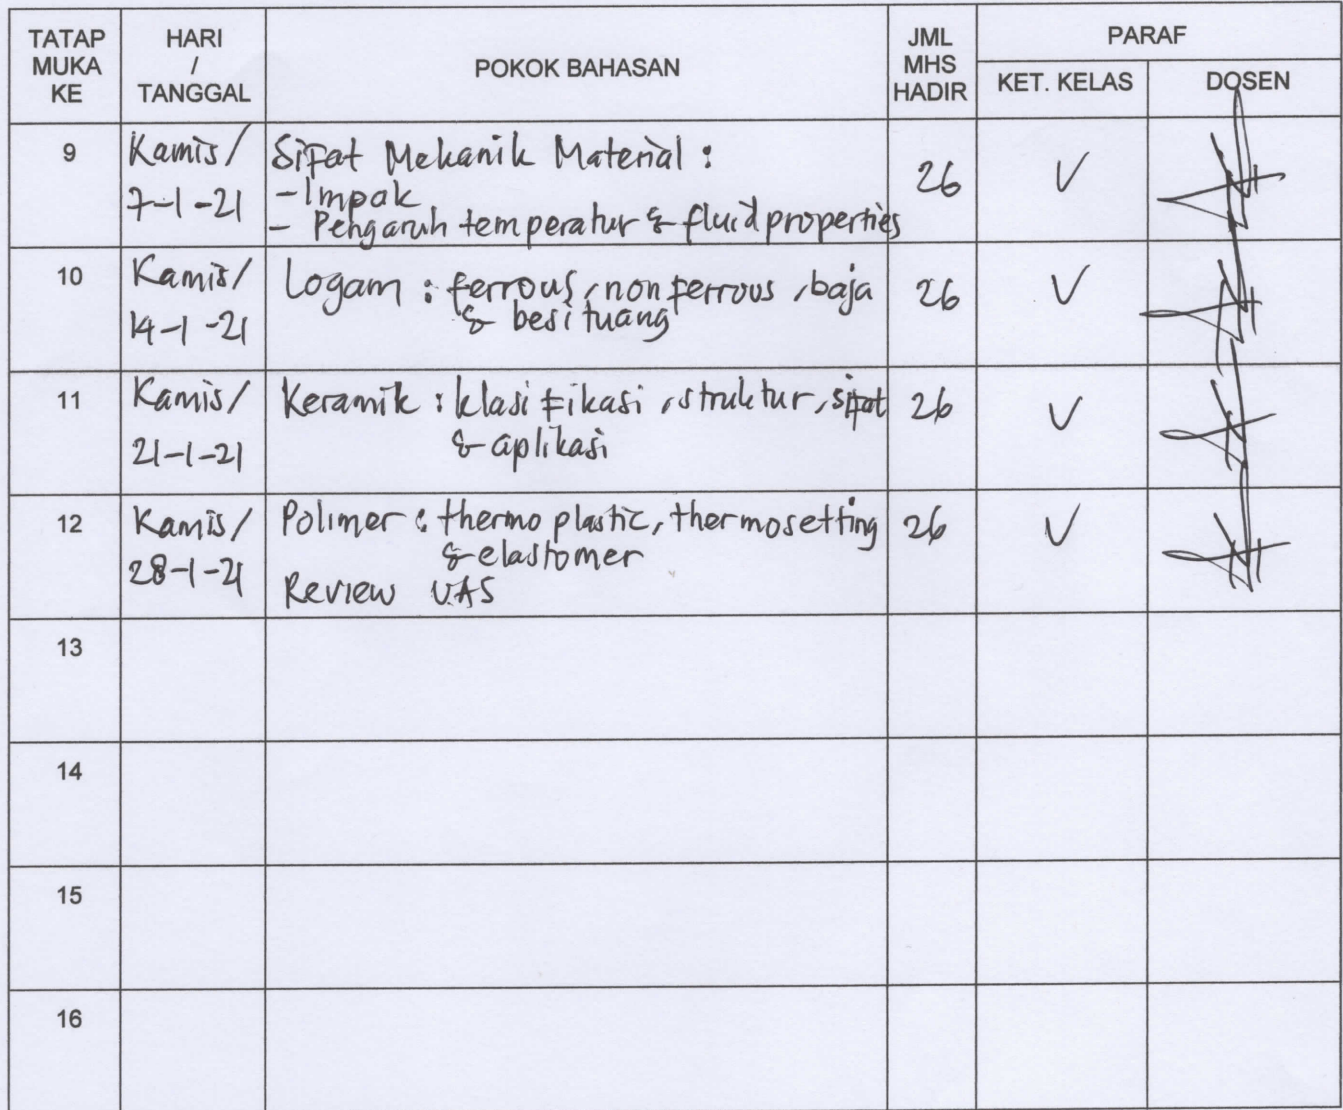 TATAP MUKA KE
HARI / TANGGAL
POKOK BAHASAN
JML MHS HADIR
PARAF
KET. KELAS
DOSEN
9
Kamis/
7-1-21
Sifat Mekanik Material :
- Impak
- Pengaruh temperatur & fluid properties
26
V
10
Kamis/
14-1-21
Logam : ferrous, non ferrous, baja
& besi tuang
26
V
11
Kamis/
21-1-21
Keramik : klasifikasi, struktur, sifat
& aplikasi
26
V
12
Kamis/
28-1-21
Polimer : thermo plastic, thermosetting
& elastomer
Review UAS
26
V
13
14
15
16